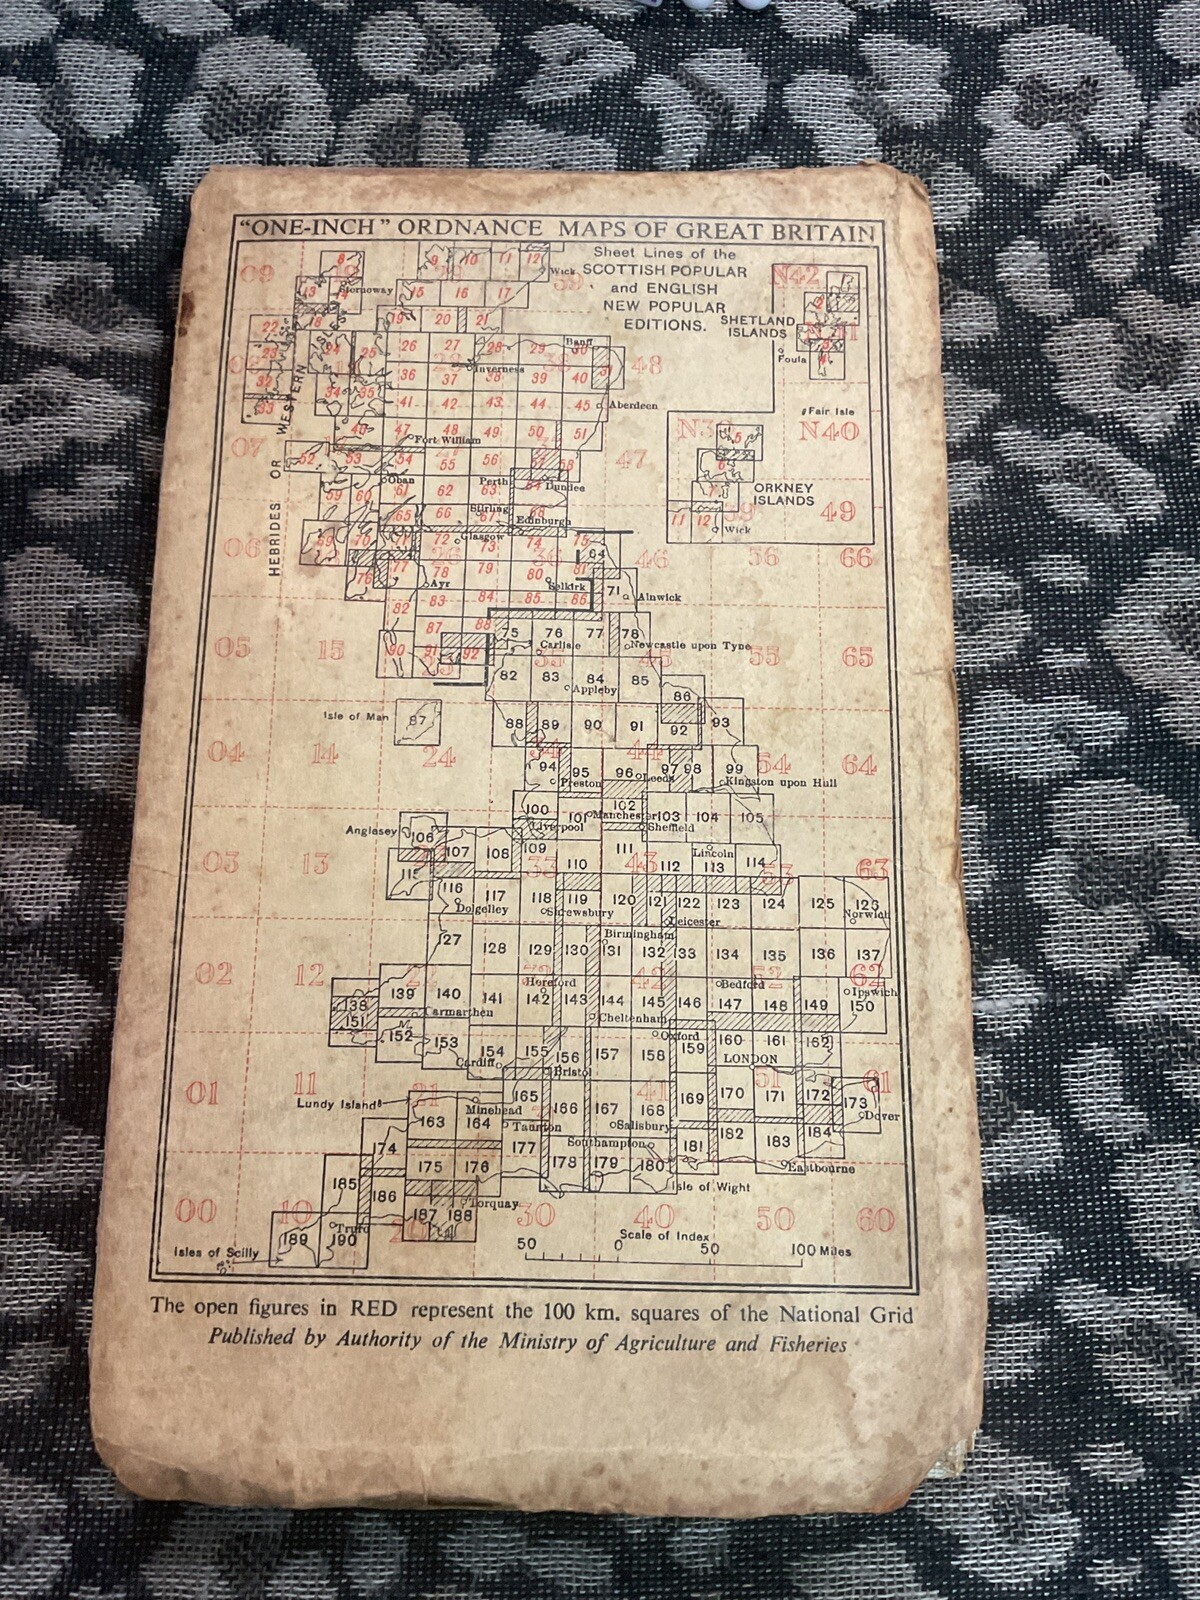 "ONE-INCH" ORDNANCE MAPS OF GREAT BRITAIN
Sheet Lines of the
SCOTTISH POPULAR
and ENGLISH
NEW POPULAR
EDITIONS.
09 N42
8 9 10 11 12 Wick
13 14 Stornoway 15 16 17
SHETLAND
ISLANDS
Foula
18 19 20 21
22 23 24 25 26 27 28 29 30 Banff
Inverness 48
32 34 35 36 37 38 39 40
33 41 42 43 44 45 Aberdeen
Fair Isle
HEBRIDES OR WESTERN ISLES
07 47 48 49 50 51 N40
Fort William
52 53 54 55 56 57 58 47
Oban Perth Dundee
ORKNEY
ISLANDS
59 60 61 62 63 64
Stirling 49
65 66 67 68 Edinburgh 11 12 Wick
06 69 70 71 72 Glasgow 73 74 75 64 46 56 66
76 77 78 79 80 81
Ayr Selkirk 71 Alnwick
82 83 84 85 86
87 88 75 76 77 78
05 15 90 91 92 Carlisle Newcastle upon Tyne 55 65
82 83 84 85
Appleby 86
Isle of Man 87 88 89 90 91 92 93
04 14 24 34 44 54 64
94 95 96 97 98 99
Preston Leeds Kingston upon Hull
100 101 102 103 104 105
Manchester
Anglesey 106 Liverpool Sheffield
107 108 109 110 111 112 113 114
Lincoln
03 13 33 43 53 63
115 116 117 118 119 120 121 122 123 124 125 126
Dolgelley Shrewsbury Leicester Norwich
127 128 129 130 131 132 133 134 135 136 137
Birmingham
02 12 22 32 42 52 62
Hereford Bedford Ipswich
138 139 140 141 142 143 144 145 146 147 148 149 150
Carmarthen Cheltenham
151 152 153 154 155 156 157 158 159 160 161 162
Oxford
Cardiff Bristol LONDON
01 11 21 41 51 61
Lundy Island Minehead
163 164 165 166 167 168 169 170 171 172 173
Taunton Salisbury Dover
174 175 176 177 178 179 180 181 182 183 184
Southampton Eastbourne
Isle of Wight
185 186 187 188
Torquay
00 10 20 30 40 50 60
Truro
Isles of Scilly 189 190
Scale of Index
50 0 50 100 Miles
The open figures in RED represent the 100 km. squares of the National Grid
Published by Authority of the Ministry of Agriculture and Fisheries